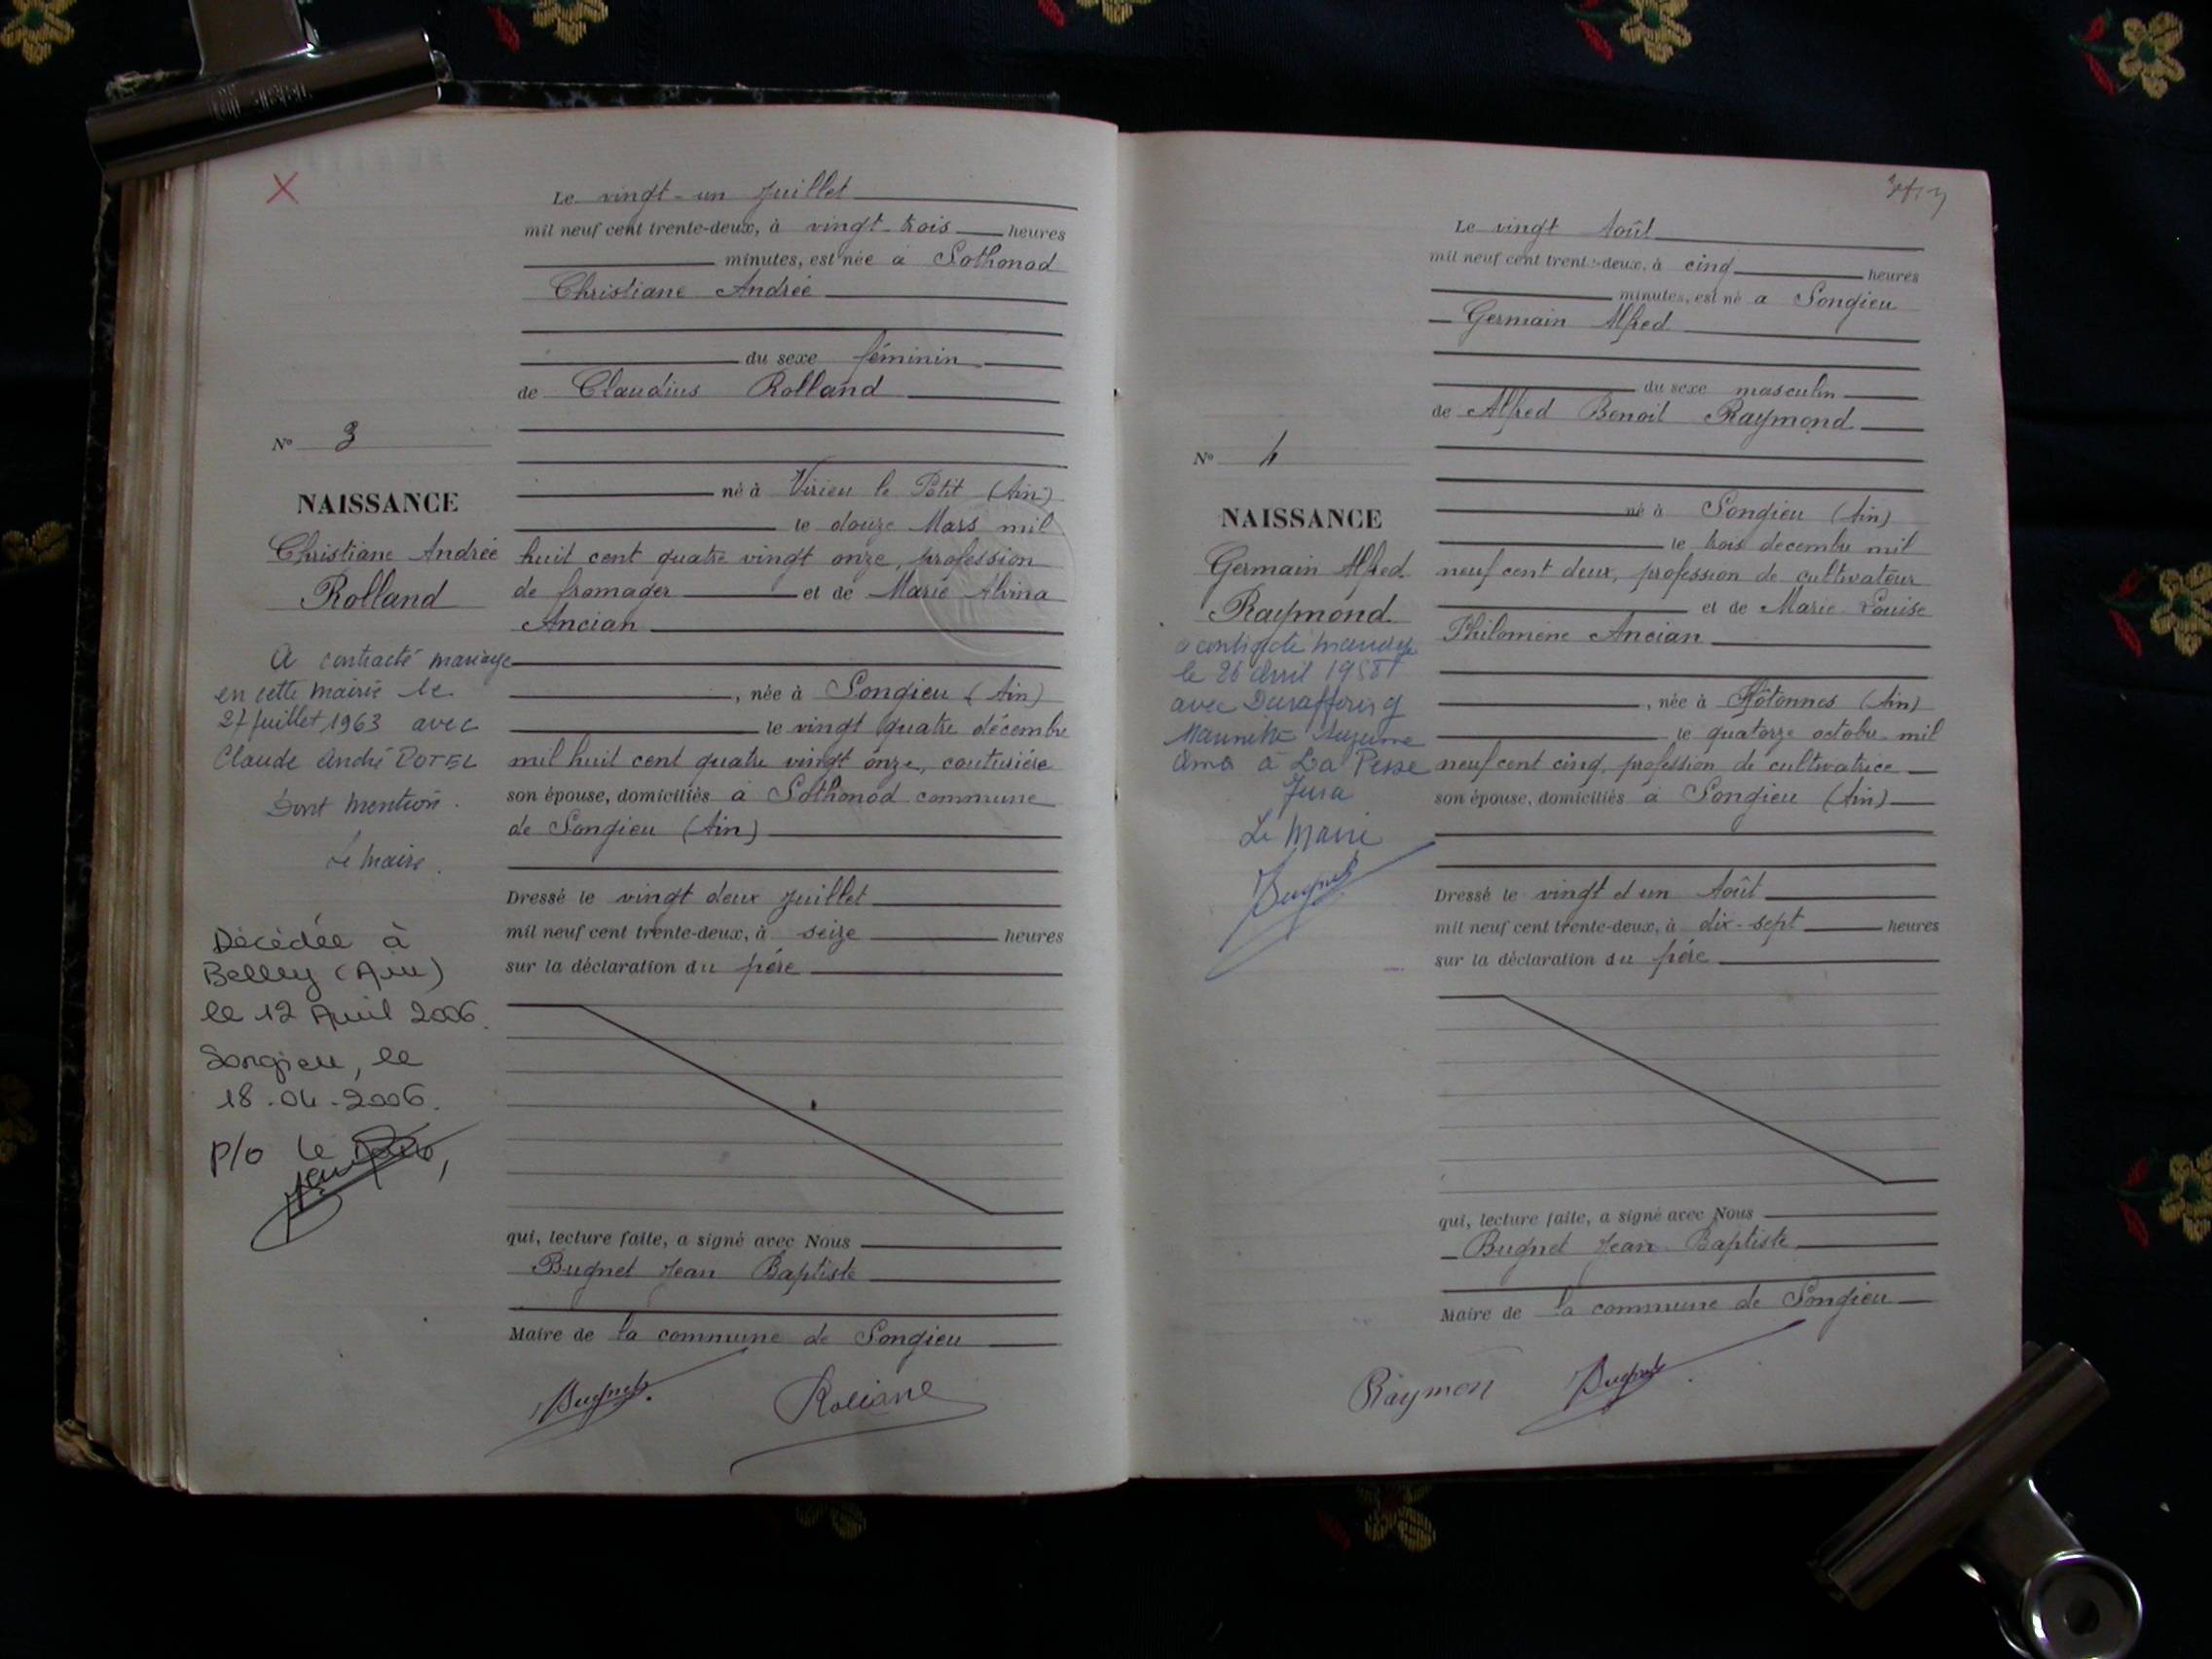 Le vingt-un Juillet
mil neuf cent trente-deux, à vingt-trois heures
minutes, est née à Sothonod
Christiane Andrée
du sexe féminin
de Claudius Rolland
né à Virieu le Petit (Ain)
le douze Mars mil
huit cent quatre vingt onze, profession
de fromager et de Marie Alvina
Ancian
, née à Songieu (Ain)
le vingt quatre décembre
mil huit cent quatre vingt onze, couturière
son épouse, domiciliés à Sothonod commune
de Songieu (Ain)
Dressé le vingt deux Juillet
mil neuf cent trente-deux, à seize heures
sur la déclaration du père
qui, lecture faite, a signé avec Nous
Bugnet Jean Baptiste
Maire de la commune de Songieu
Bugnet
N° 3
NAISSANCE
Christiane Andrée
Rolland
A contracté mariage
en cette mairie le
27 Juillet 1963 avec
Claude André POTEL
Dont mention.
Le Maire.
Décédée à
Belley (Ain)
le 12 Avril 2006.
Songieu, le
18-04-2006.
P/O Le
Le vingt Août
mil neuf cent trente-deux, à cinq heures
minutes, est né à Songieu
Germain Alfred
du sexe masculin
de Alfred Benoit Raymond
né à Songieu (Ain)
le trois décembre mil
neuf cent deux, profession de cultivateur
et de Marie Louise
Philomène Ancian
, née à Hôtonnes (Ain)
le quatorze octobre mil
neuf cent cinq, profession de cultivatrice
son épouse, domiciliés à Songieu (Ain)
Dressé le vingt et un Août
mil neuf cent trente-deux, à dix-sept heures
sur la déclaration du père
qui, lecture faite, a signé avec Nous
Bugnet Jean Baptiste
Maire de la commune de Songieu
Raymon Bugnet
N° 4
NAISSANCE
Germain Alfred
Raymond
a contracté mariage
le 26 Avril 1958
avec Duraffourg
à La Pesse
Jura
Le Maire
Bugnet